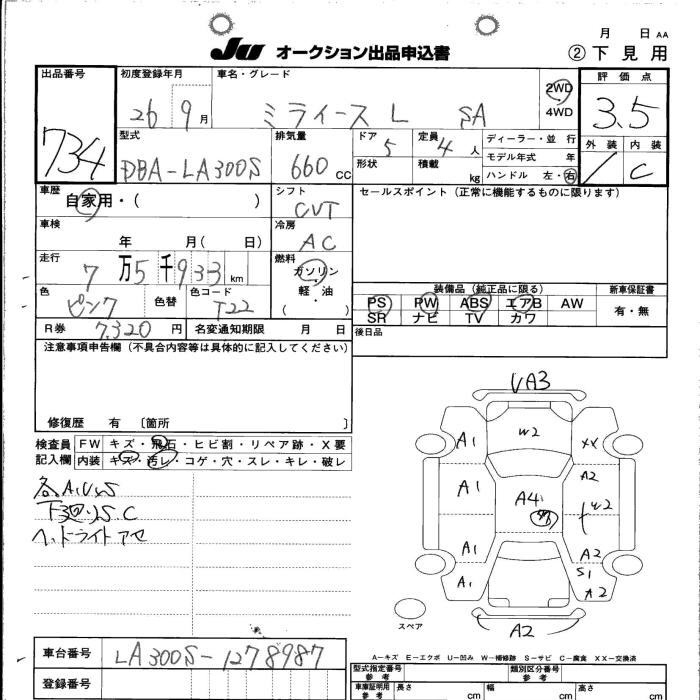 月 日 AA
JU オークション出品申込書 ②下見用
出品番号 初度登録年月 車名・グレード 評価点
734 26 9月 ミライース L SA 2WD 4WD 3.5
型式 排気量 ドア 定員 ディーラー・並行 外装 内装
DBA-LA300S 660cc 5 4人 モデル年式 年 C
形状 積載 kg ハンドル 左・右
車歴 シフト セールスポイント(正常に機能するものに限ります)
自家用・( ) CVT
車検 冷房
年 月( 日) AC
走行 燃料
7万5千933km ガソリン
軽・油
( )
色 色替 色コード 装備品(純正品に限る) 新車保証書
ピンク T22 PS PW ABS エアB AW 有・無
SR ナビ TV カワ
R券 7,320円 名変通知期限 月 日 後日品
注意事項申告欄(不具合内容等は具体的に記入してください)
修復歴 有 〔箇所 〕
検査員 FW キズ・飛石・ヒビ割・リペア跡・X要
記入欄 内装 キズ・汚レ・コゲ・穴・スレ・キレ・破レ
各A.U.S
下回りS.C
ヘッドライトアセ
UA3
A1 W2 XX
A1 A4 A2
W2
A1 A2
S1
A1 A2
スペア A2
A-キズ E-エクボ U-凹み W-補修跡 S-サビ C-腐食 XX-交換済
車台番号 LA300S-1278987
登録番号
型式指定番号 参考 類別区分番号 参考
車庫証明用 参考 長さ cm 幅 cm 高さ cm